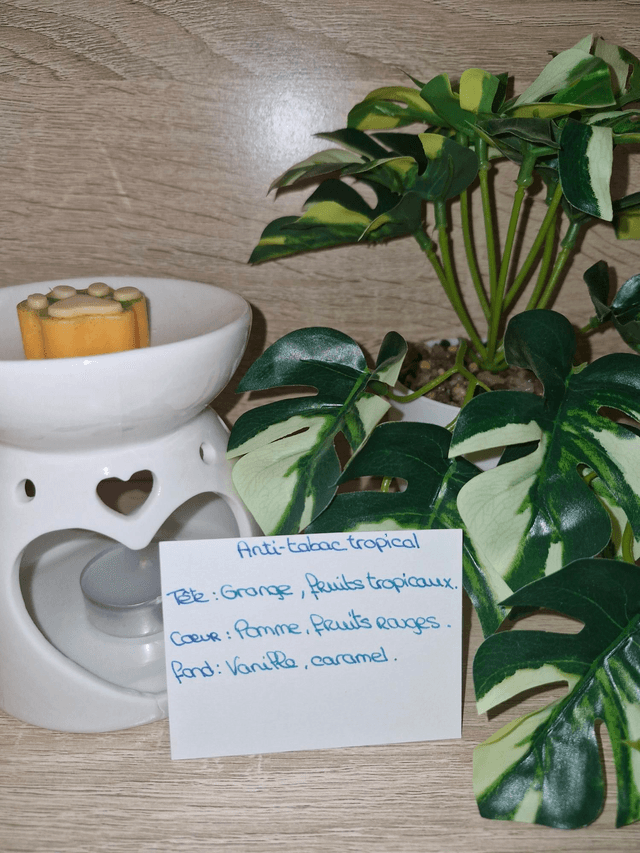 Anti-tabac tropical
Tête : Orange, fruits tropicaux.
Coeur : Pomme, fruits Rouges.
fond : Vanille, caramel.